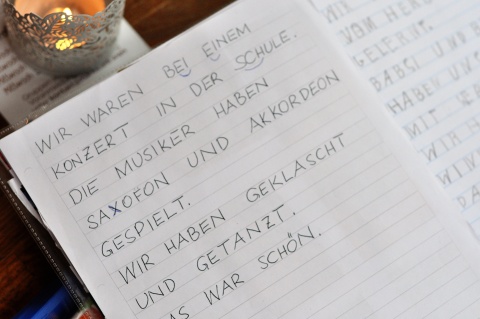 WIR WAREN BEI EINEM
KONZERT IN DER SCHULE.
DIE MUSIKER HABEN
SAXOFON UND AKKORDEON
GESPIELT.
WIR HABEN GEKLASCHT
UND GETANZT.
AS WAR SCHÖN.
VOM
GELERNT.
BABSI UND
HABEN
MIT